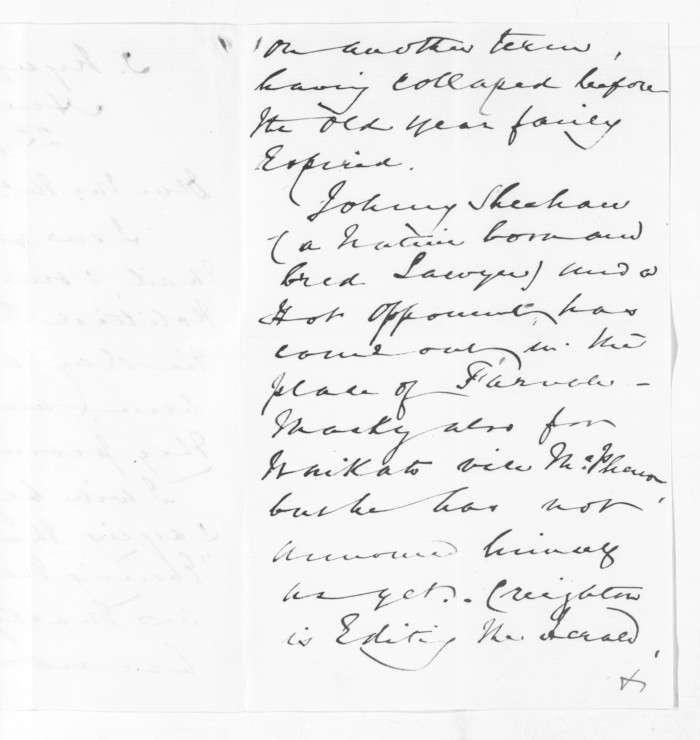 on another term,
having collapsed before
the old year fairly
Expired.
Johnny Sheehan
(a Native born and
bred Lawyer) and a
Hot Opponent, has
come out in the
place of
Macky also for
Waikato vice McPherson,
but he has not
announced himself
as yet. Creighton
is Editing the Herald,